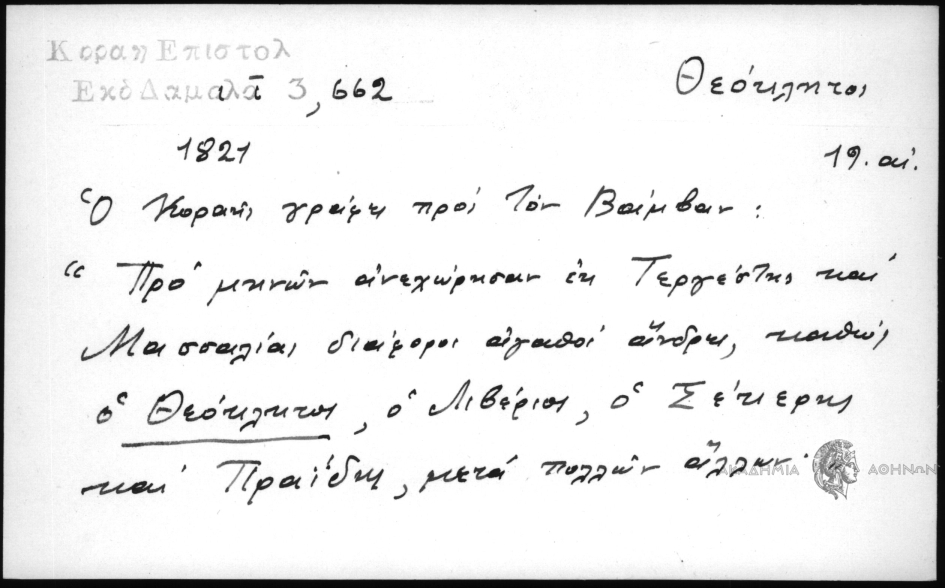 Κοραη Επιστολ
Θεόκλητος
Εκδ Δαμαλά 3, 662
1821
19. αἰ.
Ὁ Κοραῆς γράφει πρὸς τὸν Βάμβαν :
“ Πρὸ μηνῶν ἀνεχώρησαν ἐκ Τεργέστης καὶ
Μασσαλίας διάφοροι ἀγαθοὶ ἄνδρες, καθὼς
ὁ Θεόκλητος, ὁ Λιβέριος, ὁ Σέκερης
καὶ Πραΐδης, μετὰ πολλῶν ἄλλων.
ΑΚΑΔΗΜΙΑ ΑΘΗΝΩΝ